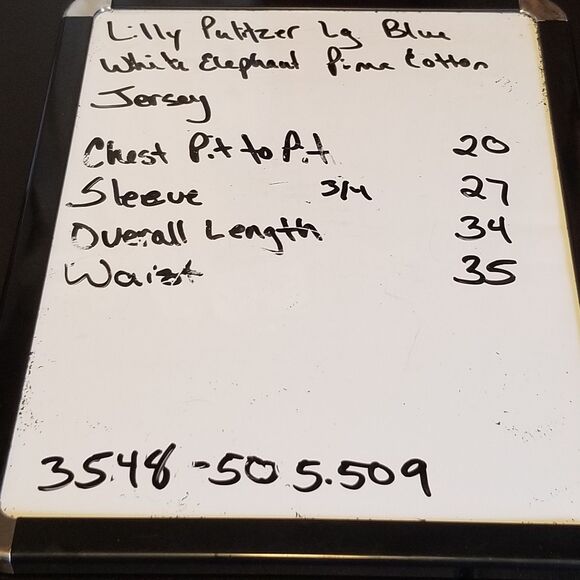 Lilly Pulitzer Lg Blue
White Elephant Pima Cotton
Jersey
Chest Pit to Pit 20
Sleeve 3/4 27
Overall Length 34
Waist 35
3548-50 5.509